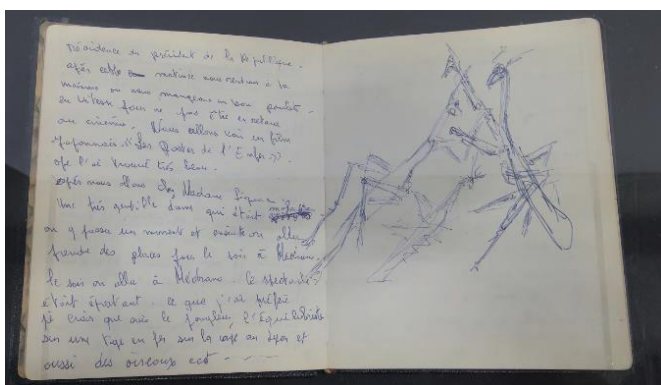 Résidence du président de la République.
après cette visite nous rentrons à la
maison ou nous mangeons un bon poulet
en vitesse pour ne pas être en retard
au cinéma. Nous allons voir un film
Japonnais "Les Portes de l'Enfer".
je l'ai trouvé très beau.
après nous allons chez Madame
Une très gentille dame qui était
on y passe un moment et ensuite on alla
prendre des places pour le soir à Médrano.
le soir on alla à Médrano. Ce spectacle
était épatant. ce que j'ai préféré
je crois que c'est le jongleur, l'équilibriste
sur une tige en fer sur la cage au lion et
aussi des oiseaux ect - - -